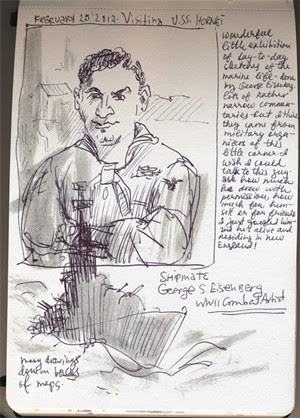 FEBRUARY 25' 2012. Visiting U.S.S. HORNET
Wonderful
little exhibition
of day-to-day
sketches of the
marine life - done
by George Eisenberg.
lots of rather
narrow commen-
taries - but I think
they came from
military orga-
nizers of this
little corner. I
wish I could
talk to this guy -
ask how much
he drew with
permission, how
much for him-
self or for friends
I just googled him -
and he's alive and
residing in new
England!
SHIPMATE
George S Eisenberg
WWII Combat Artist
many drawings
done on backs
of maps.